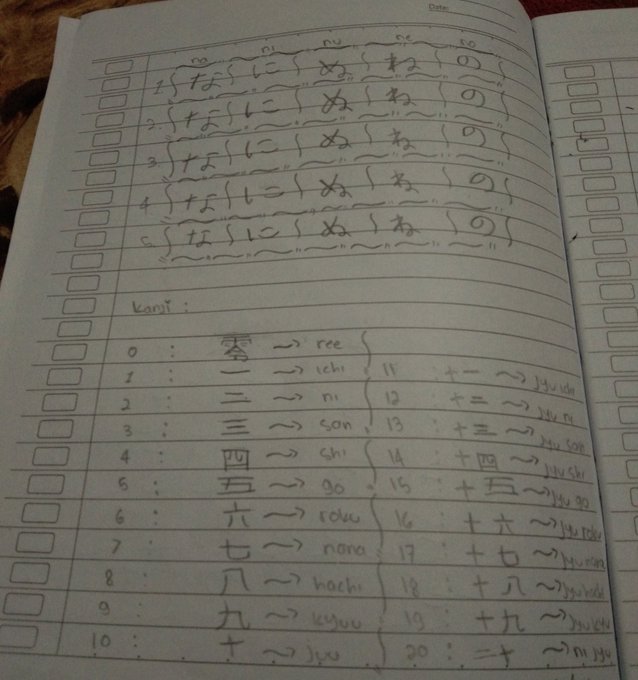 Date:
na ni nu ne no
1. な に ぬ ね の
2. な に ぬ ね の
3. な に ぬ ね の
4. な に ぬ ね の
5. な に ぬ ね の
Kanji :
0 : 零 → ree
1 : 一 → ichi 11 : 十一 → jyu ichi
2 : 二 → ni 12 : 十二 → jyu ni
3 : 三 → san 13 : 十三 → jyu san
4 : 四 → shi 14 : 十四 → jyu shi
5 : 五 → go 15 : 十五 → jyu go
6 : 六 → roku 16 : 十六 → jyu roku
7 : 七 → nana 17 : 十七 → jyu nana
8 : 八 → hachi 18 : 十八 → jyu hachi
9 : 九 → kyuu 19 : 十九 → jyu kyu
10 : 十 → jyu 20 : 二十 → ni jyu